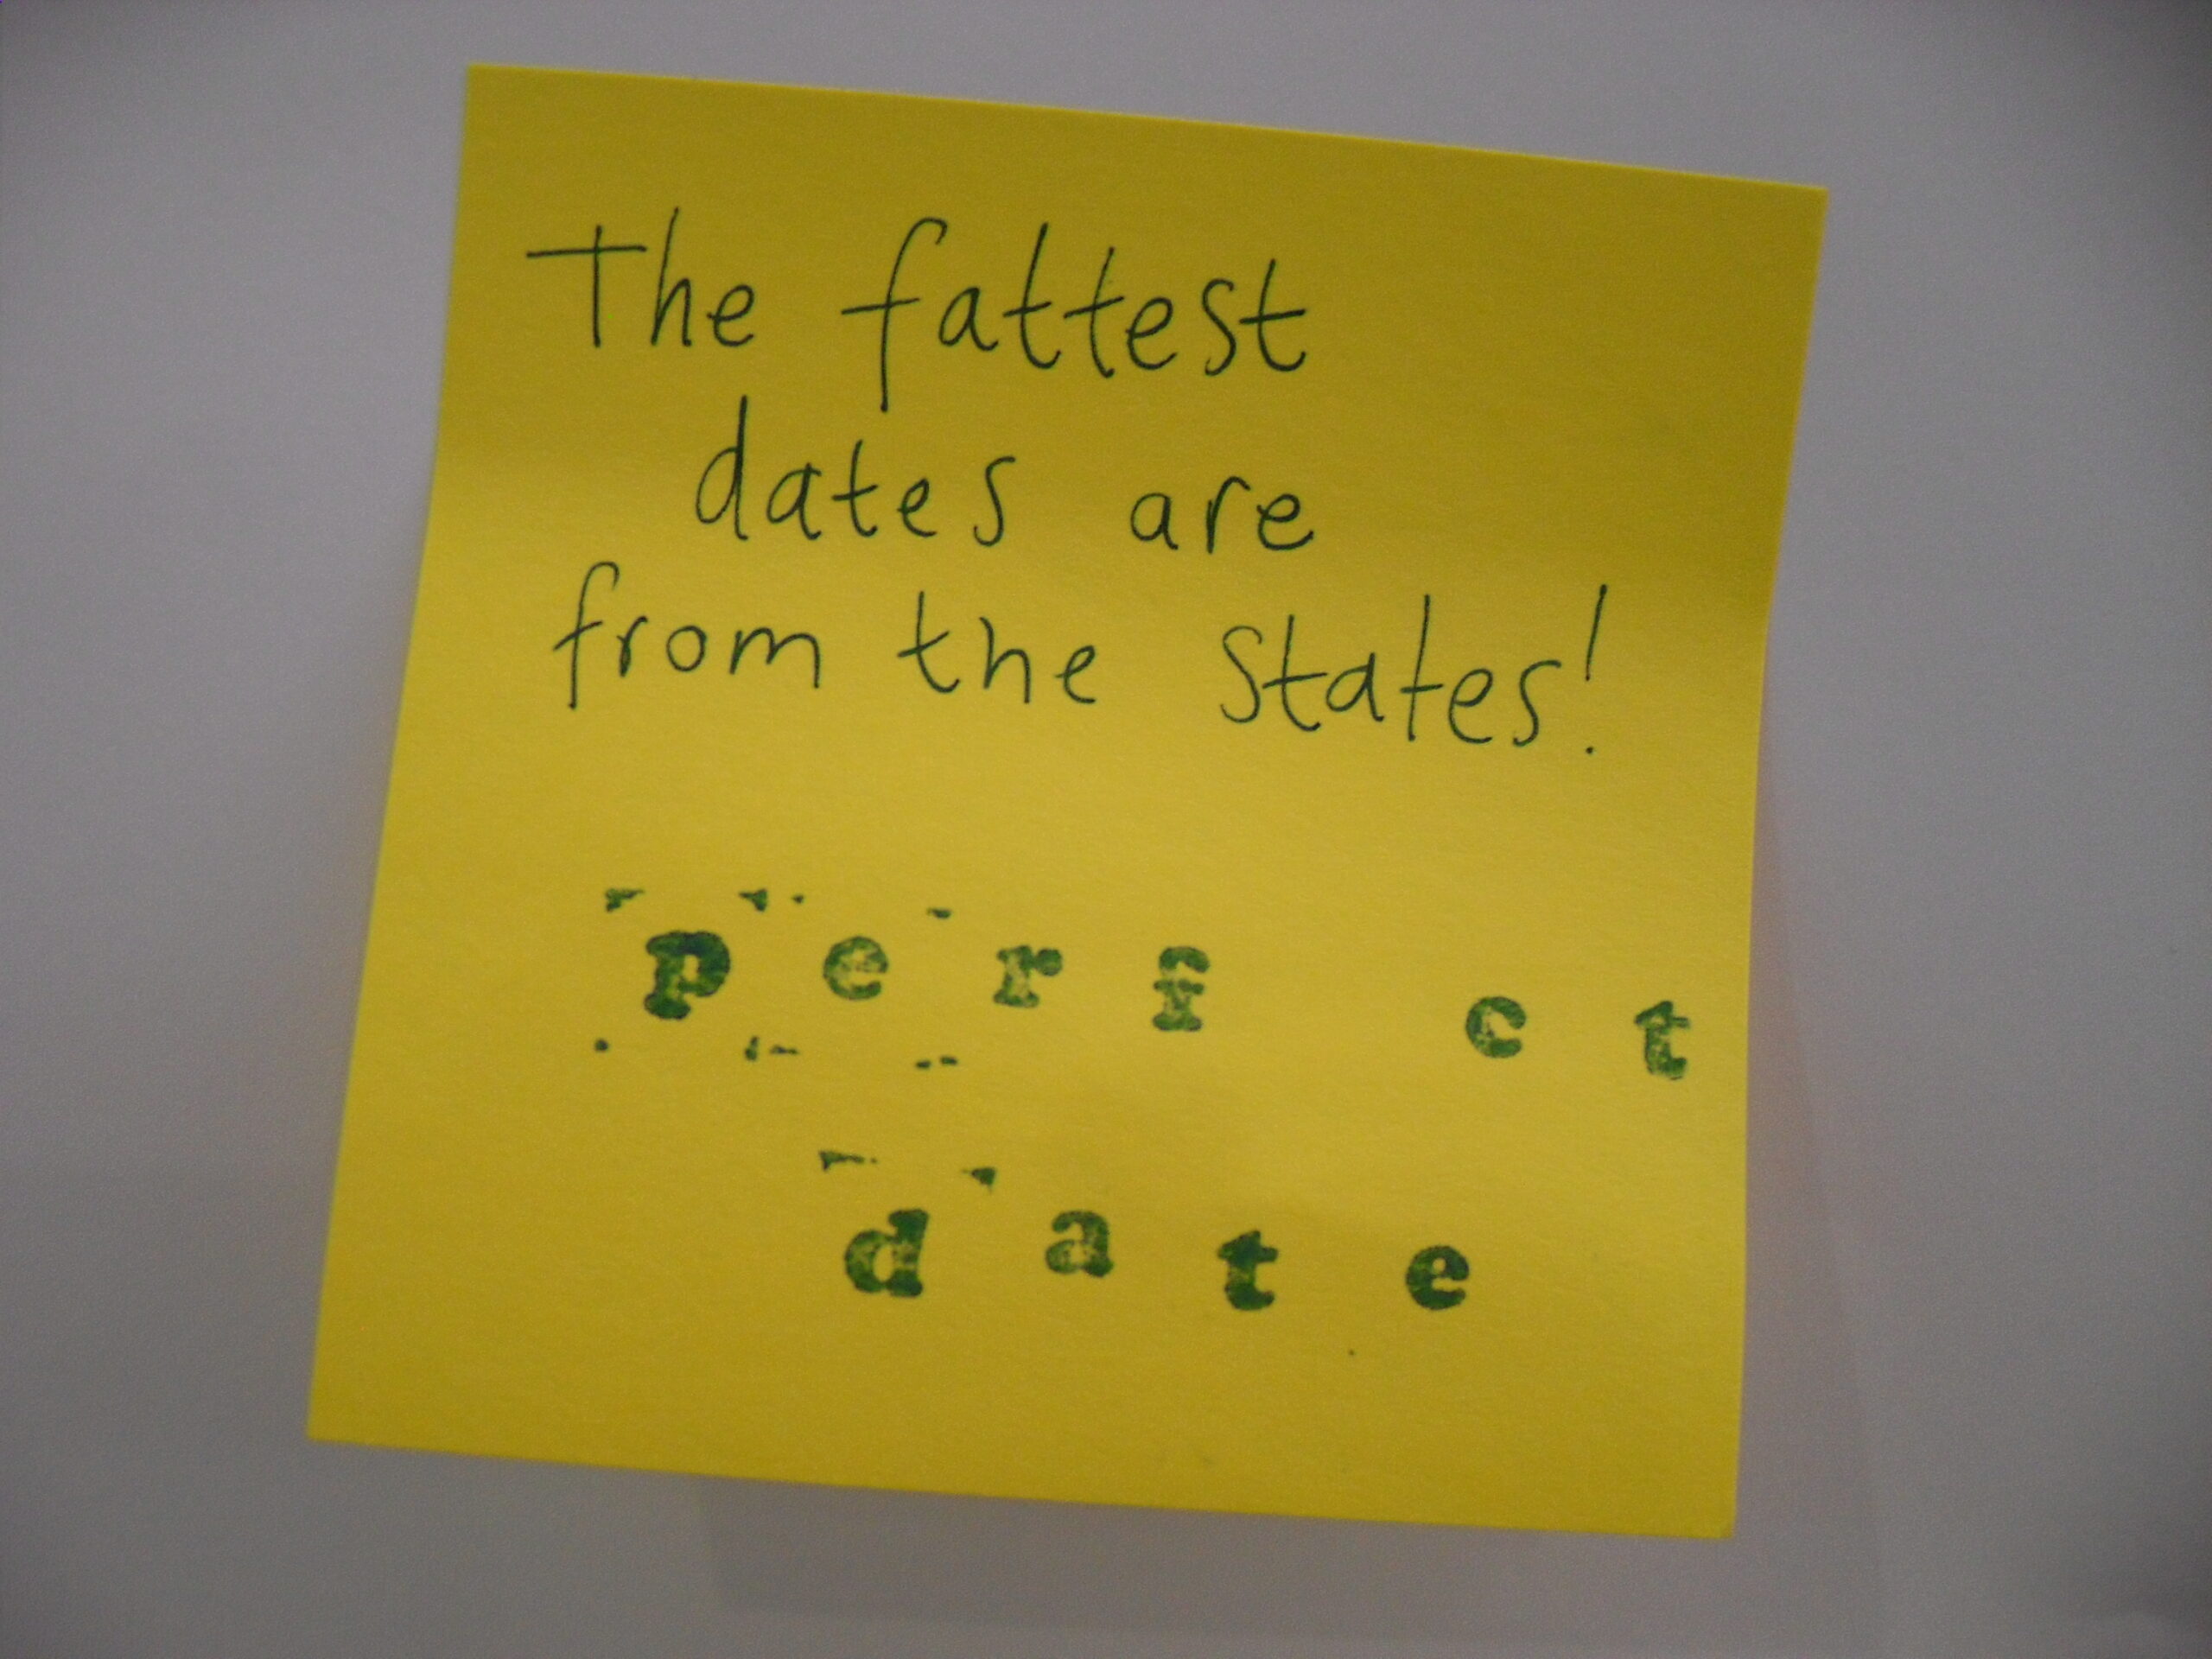 The fattest
dates are
from the states!
perf ct
date